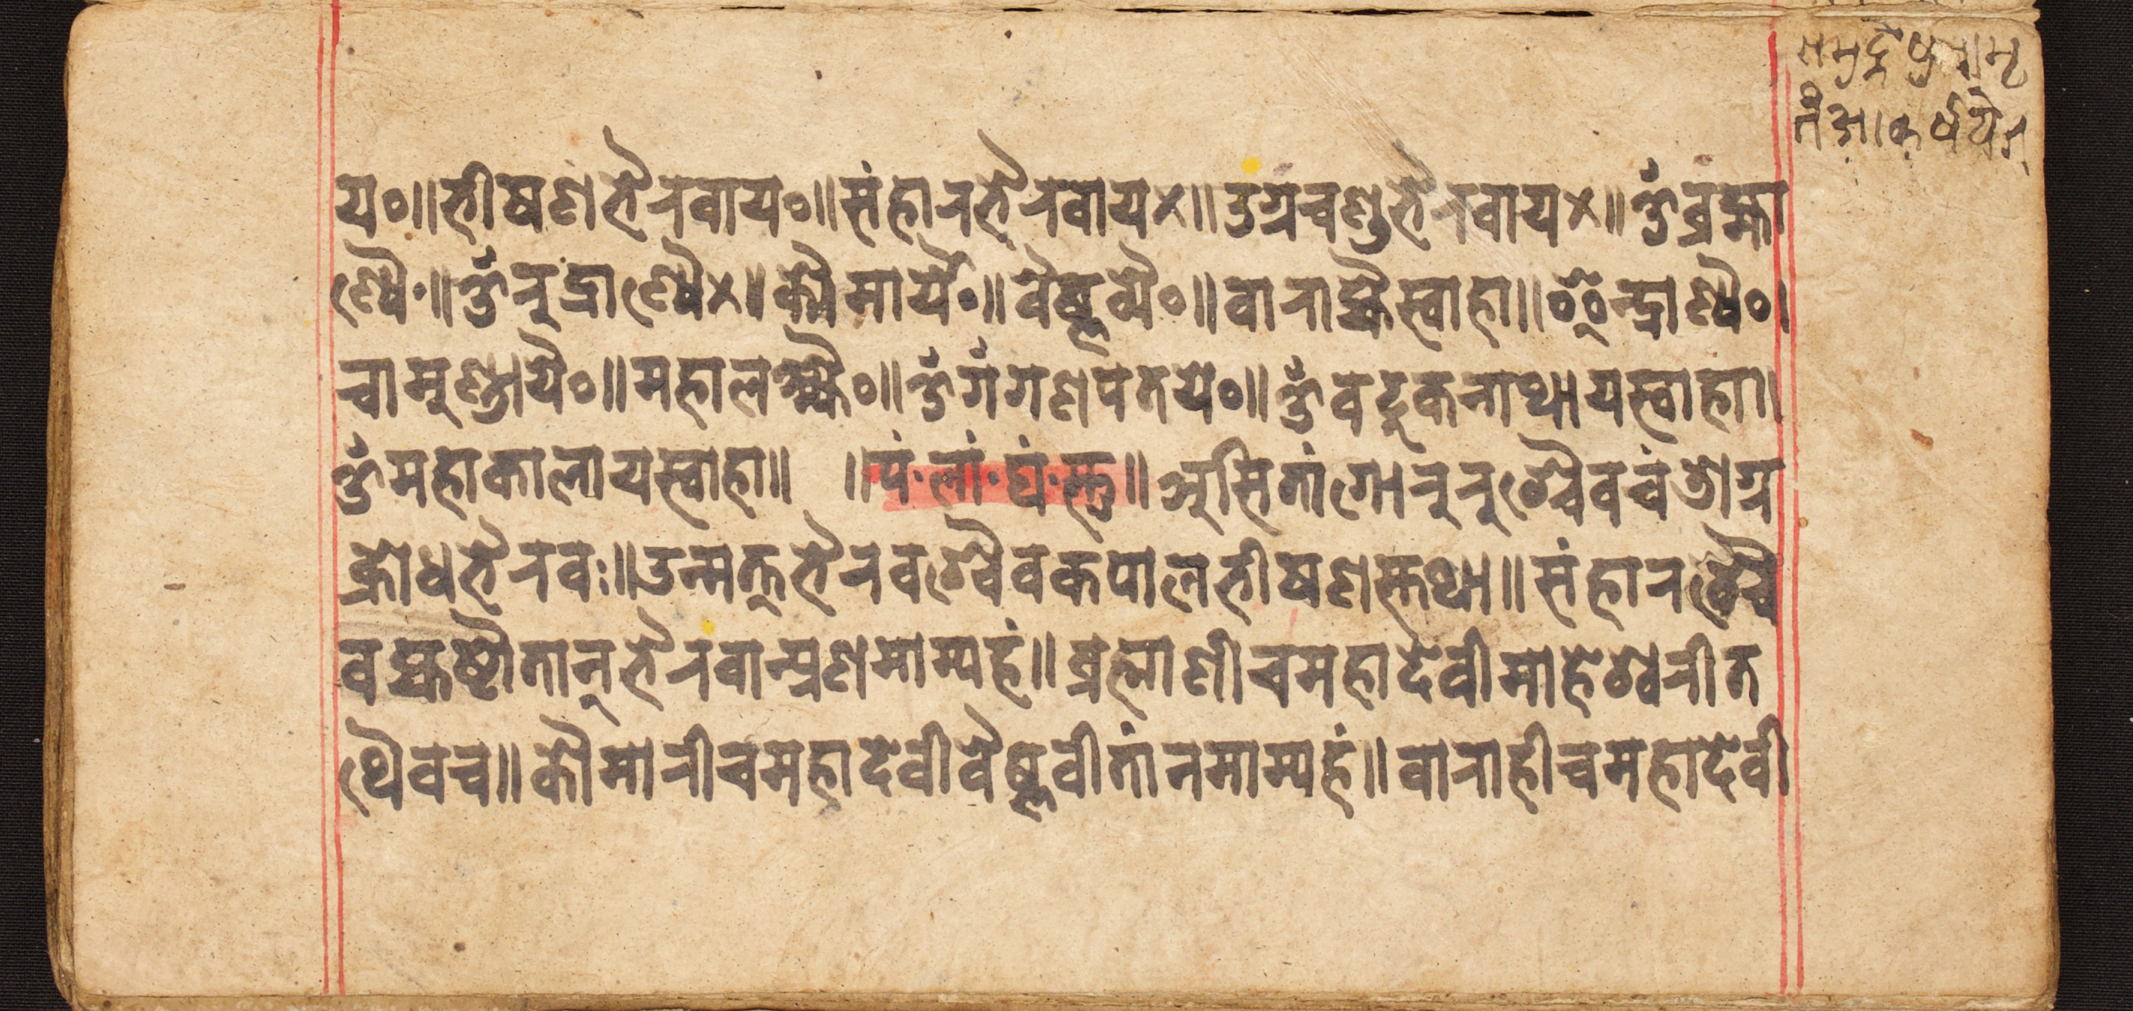 तमुद्रेषुमामृ
तँआकर्षयेत्
य॰॥भीषणभैरवाय॰॥संहारभैरवाय×॥उग्रचण्डभैरवाय×॥ॐब्रह्मा
ण्यै॰॥ॐरुद्राण्यै×॥कौमार्यै॰॥वैष्णव्यै॰॥वाराह्यैस्वाहा॥इन्द्राण्यै॰।
चामुण्डायै॰॥महालक्ष्म्यै॰॥ॐगँगणपतये॰॥ॐवटुकनाथायस्वाहा॥
ॐमहाकालायस्वाहा॥ ॥पं॰लां॰घं॰स्तु॥असितांगोरुरुश्चैवचंडोग्र
क्रोधभैरवः॥उन्मत्तभैरवश्चैवकपालभीषणस्तथा॥संहारश्चै
वह्यष्टौतान्भैरवान्प्रणमाम्यहं॥ब्रह्माणीचमहादेवीमाहेश्वरीत
थैवच॥कौमारीचमहादेवीवैष्णवीतांनमाम्यहं॥वाराहीचमहादेवी